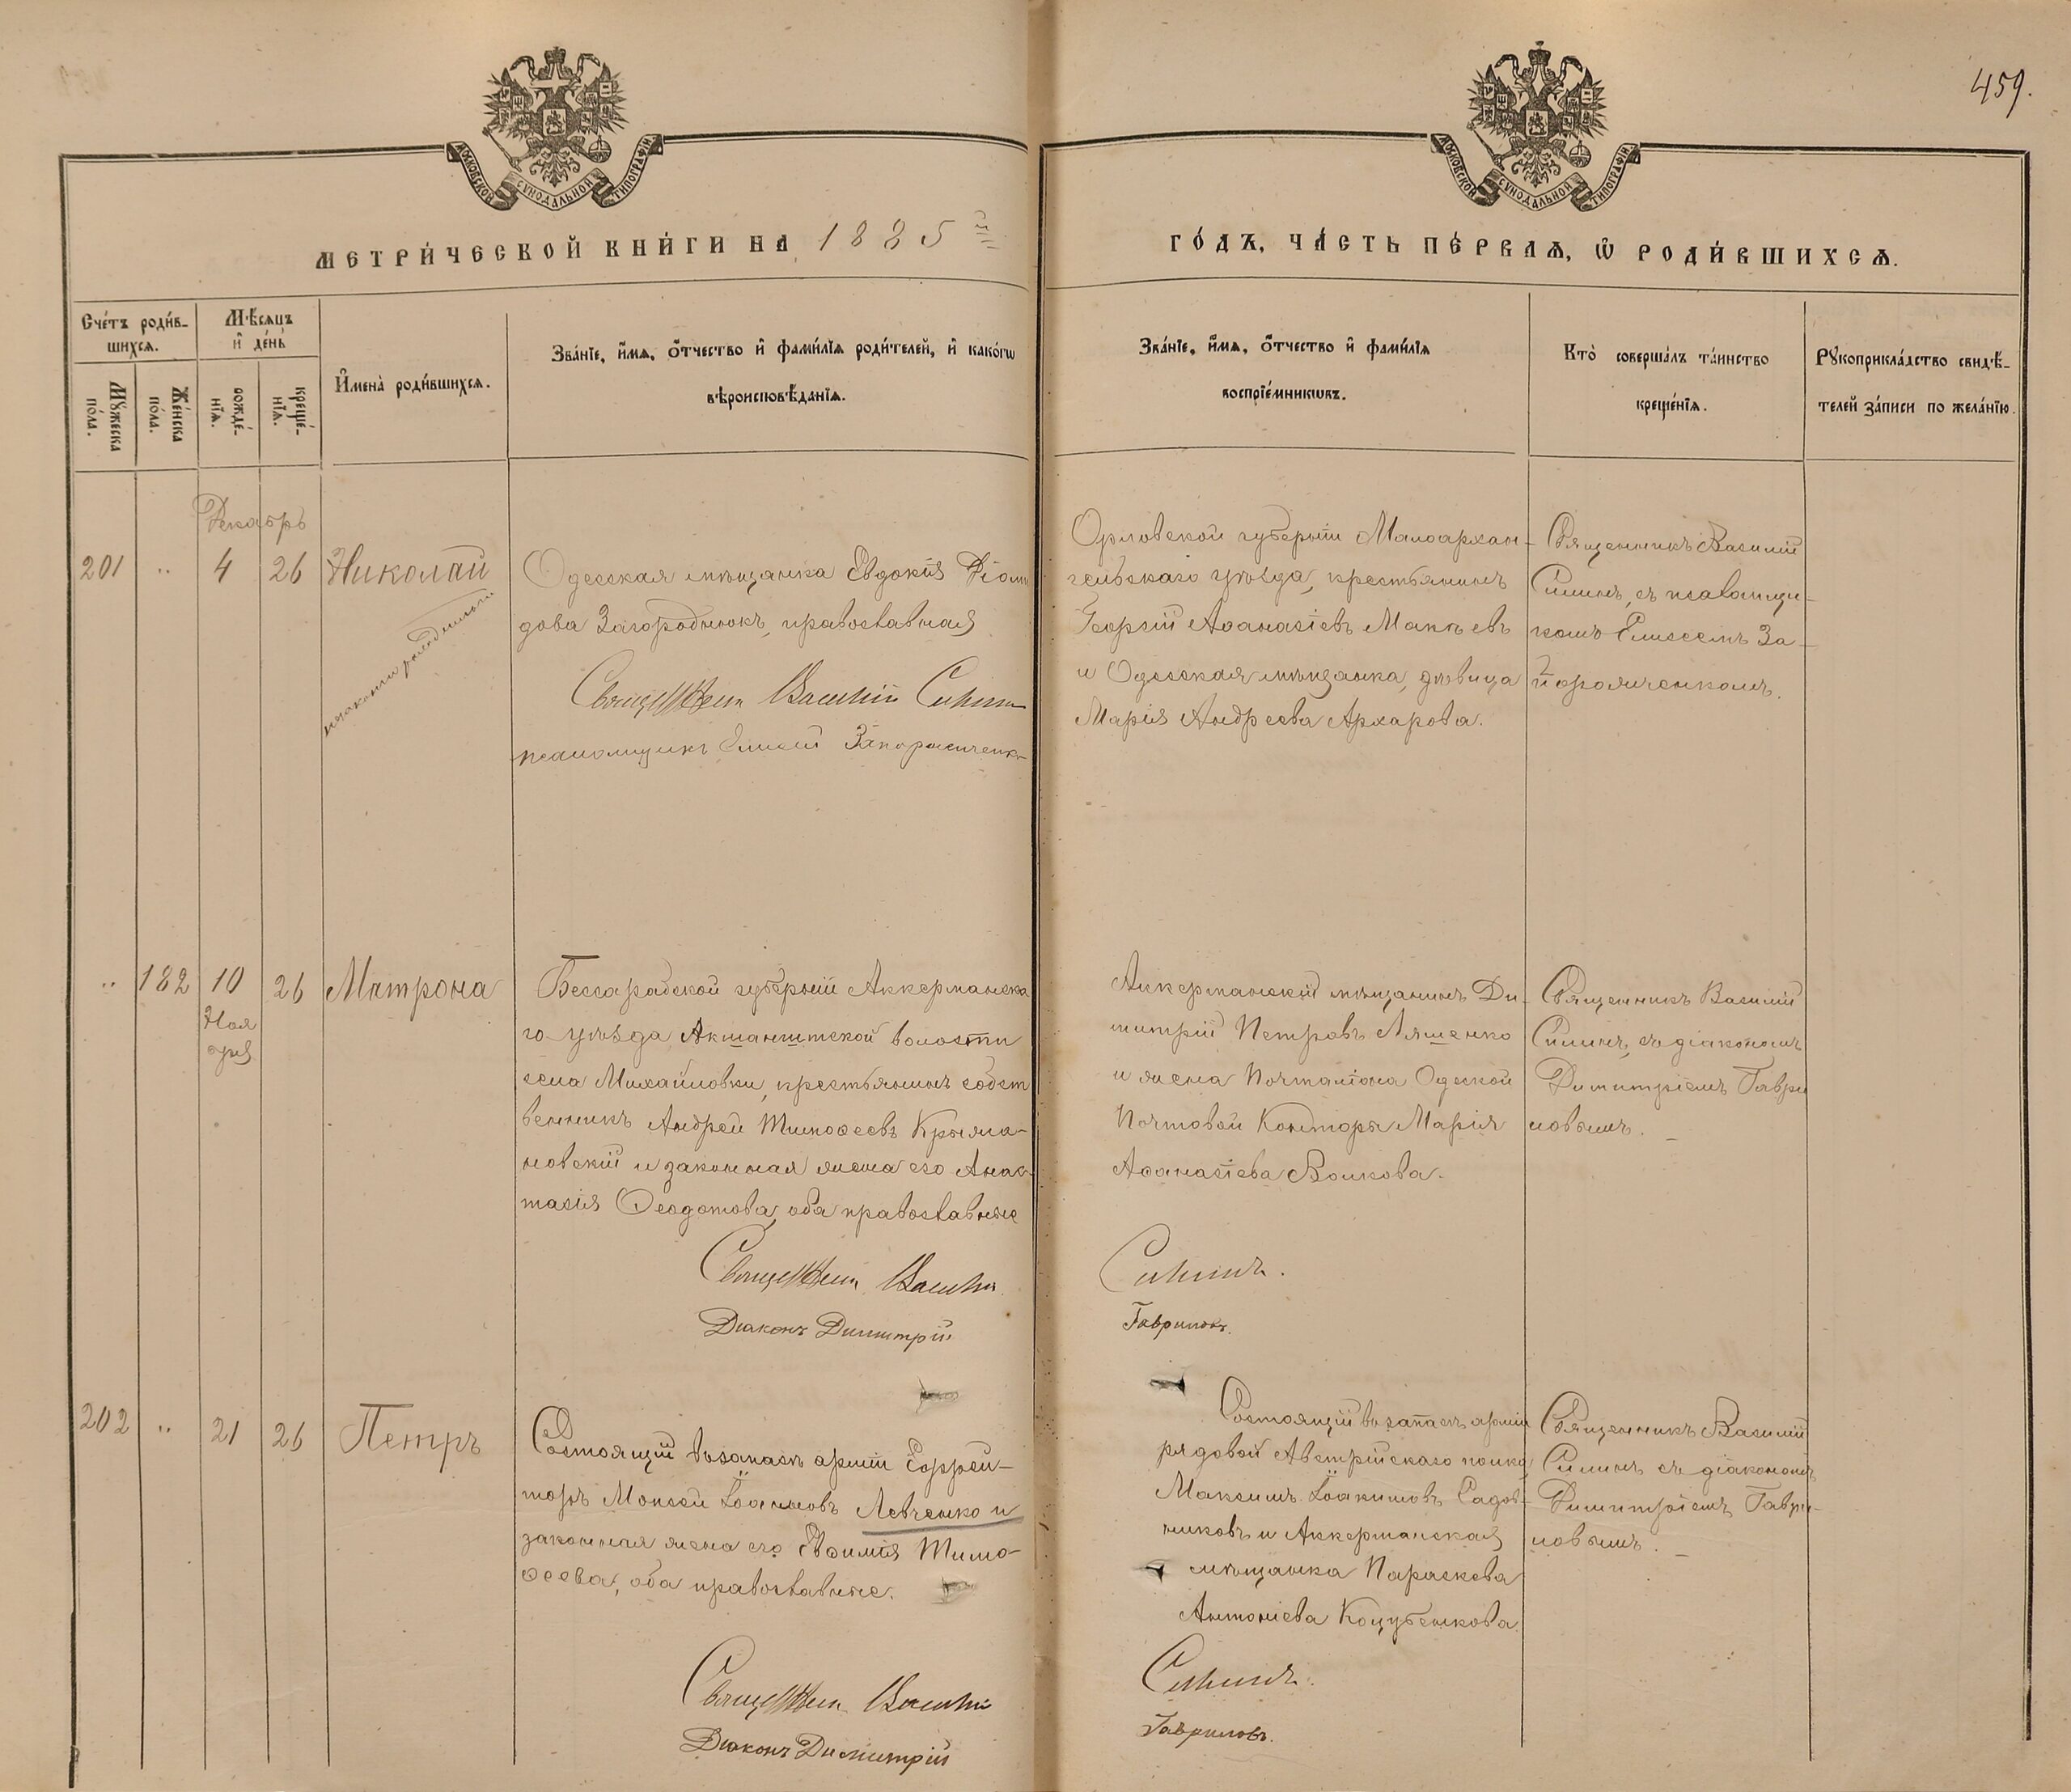 459.
МОСКОВСКОЙ СѴНОДАЛЬНОЙ ТИПОГРАФІИ
МОСКОВСКОЙ СѴНОДАЛЬНОЙ ТИПОГРАФІИ
МЕТРИ́ЧЕСКОЙ КНИ́ГИ НА 1885й
ГО́ДЪ, ЧА́СТЬ ПЕ́РВАѦ, Ѡ҆ РОДИ́ВШИХСѦ.
Сче́тъ роди́в-
шихсѧ.
Мꙋ́жеска по́ла.
Же́нска по́ла.
Мѣ́сѧцъ и҆ де́нь
рожде́-
нїѧ.
креще́-
нїѧ.
И҆мена̀ роди́вшихсѧ.
Зва́нїе, и҆́мѧ, ѻ҆́тчество и҆ фами́лїѧ роди́телей, и҆ како́гѡ
вѣроисповѣ́данїѧ.
Зва́нїе, и҆́мѧ, ѻ҆́тчество и҆ фами́лїѧ
воспрїе́мникѡвъ.
Кто̀ соверша́лъ та́инство
креще́нїѧ.
Рꙋкоприкла́дство свидѣ́-
телей за́писи по жела́нїю.
Декабрь
201 .. 4 26 Николай
незаконнорожденный
Одесская мѣщанка Евдокія Діоми
дова Загороднюкъ, православная
Священник Василій Силин
псаломщикъ Елисей Запорожченко
Орловской губерніи Малоархан-
гельскаго уѣзда, крестьянинъ
Георгій Аѳанасіевъ Макѣевъ
и Одесская мѣщанка, дѣвица
Марія Андреева Архарова.
Священникъ Василій
Силинъ, съ псаломщи-
комъ Елисеемъ За-
порожченкомъ.
.. 182 10 26 Матрона
Ноя
бря
Бессарабской губерніи Аккерманска
го уѣзда Акмангитской волости
села Михайловки, крестьянинъ собст
венникъ Андрей Тимоѳеевъ Крыжа-
новскій и законная жена его Анас-
тасія Ѳеодотова, оба православные
Священник Василій
Діаконъ Димитрій
Аккерманскій мѣщанинъ Ди-
митрій Петровъ Ляшенко
и жена Почталіона Одеской
Почтовой Конторы Марія
Аѳанасіева Волкова.
Силинъ.
Гавриловъ.
Священникъ Василій
Силинъ, съ діакономъ
Димитріемъ Гаври
ловымъ.
202 .. 21 26 Петръ
Состоящій въ запасѣ арміи Ефрей-
торъ Моисей Іоанновъ Левченко и
законная жена его Евѳимія Тимо-
ѳеева, оба православные.
Священник Василій
Діаконъ Димитрій
Состоящій въ запасѣ арміи
рядовой Австрійскаго полка
Максимъ Іоакимовъ Садов-
никовъ и Аккерманская
мѣщанка Параскева
Антоніева Коцубенкова
Силинъ.
Гавриловъ.
Священникъ Василій
Силинъ съ діакономъ
Димитріемъ Гаври-
ловымъ.